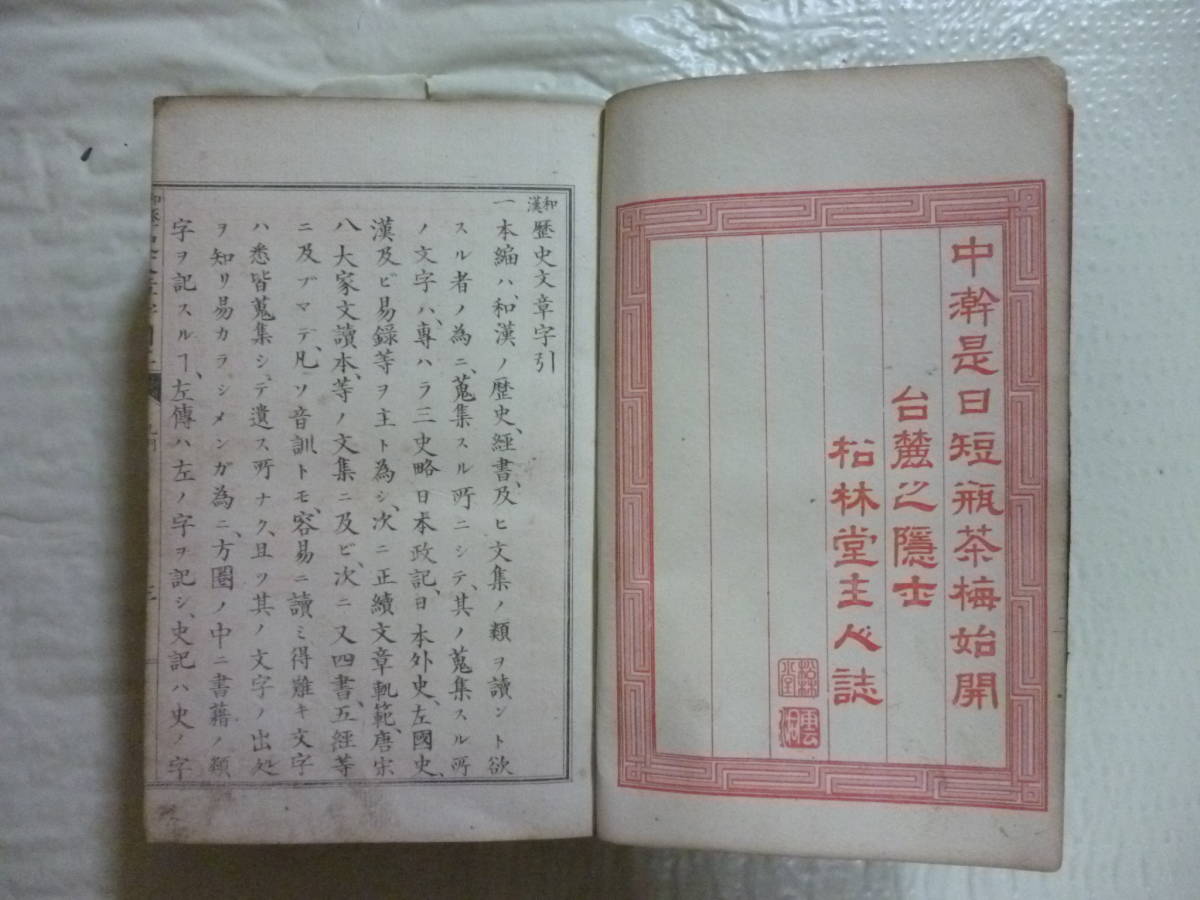 中澣是日短瓶茶梅始開
台麓之隱士
松林堂主人誌
和漢歷史文章字引
一本編ハ、和漢ノ歷史、經書、及ヒ文集ノ類ヲ讀ント欲
スル者ノ為ニ、蒐集スル所ニシテ、其ノ蒐集スル所
ノ文字ハ、專ハラ三史略日本政記、日本外史、左國史、
漢及ビ易録等ヲ主ト為シ、次ニ正續文章軌範、唐宋
八大家文讀本、等ノ文集ニ及ビ、次ニ又四書、五經等
ニ及ブマデ、凡ソ音訓トモ、容易ニ讀ミ得難キ文字
ハ悉皆蒐集シ、テ遺ス所ナク、且ツ其ノ文字ノ出処
ヲ知リ易カラシメンガ為ニ、方圏ノ中ニ書藉ノ類
字ヲ記スルヿ、左傳ハ左ノ字ヲ記シ、史記ハ史ノ字